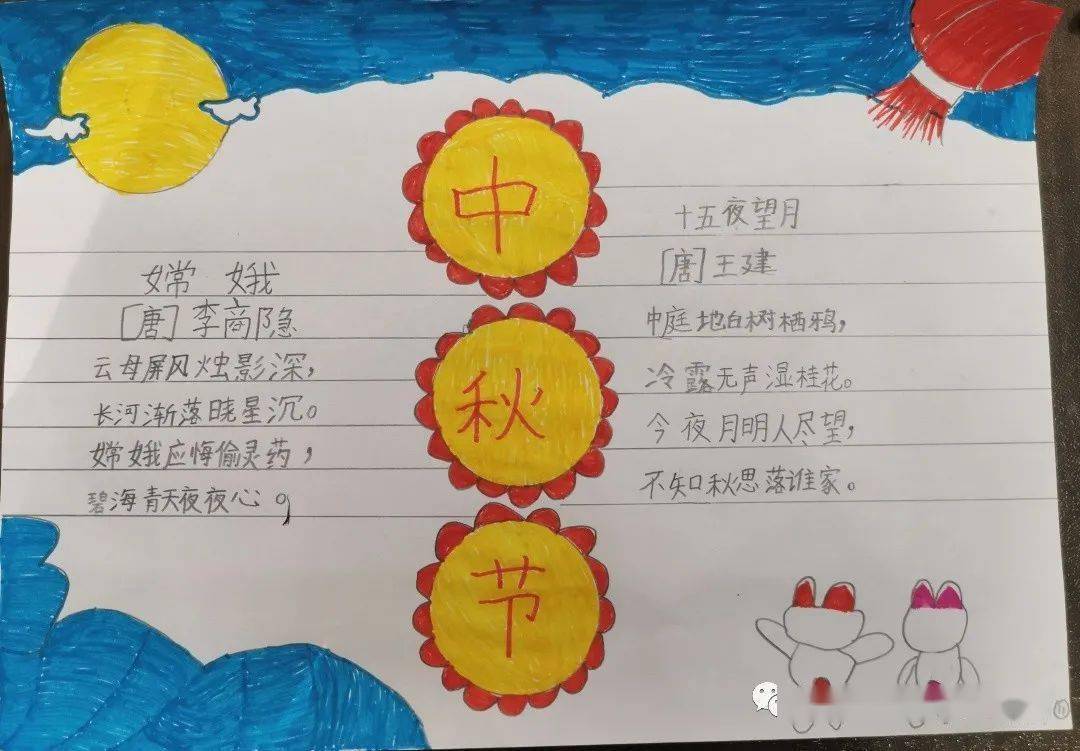 中
秋
节
嫦 娥
[唐]李商隐
云母屏风烛影深，
长河渐落晓星沉。
嫦娥应悔偷灵药，
碧海青天夜夜心。
十五夜望月
[唐]王建
中庭地白树栖鸦，
冷露无声湿桂花。
今夜月明人尽望，
不知秋思落谁家。